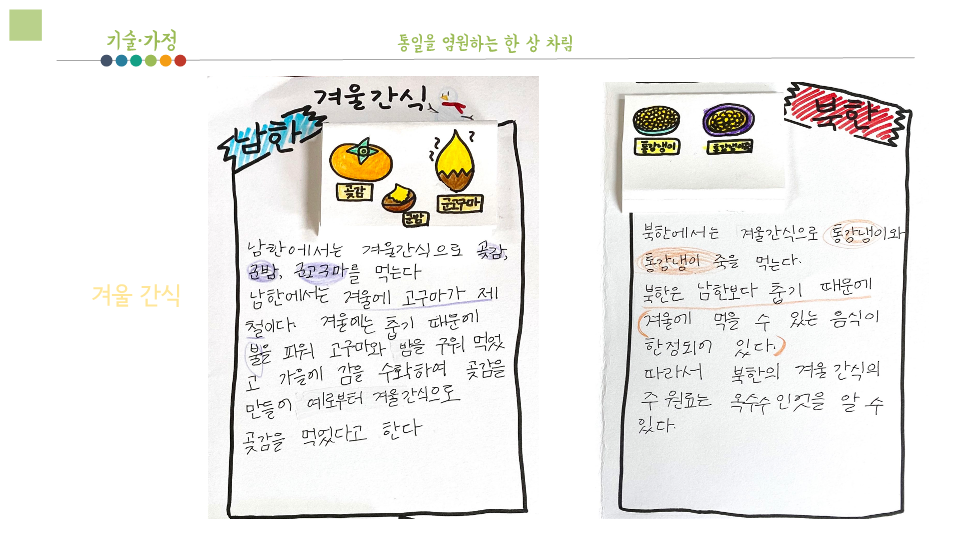 기술·가정
통일을 염원하는 한 상 차림
겨울 간식
겨울간식
남한
곶감
군밤
군고구마
남한에서는 겨울간식으로 곶감,
군밤, 군고구마를 먹는다
남한에서는 겨울에 고구마가 제
철이다. 겨울에는 춥기 때문에
불을 피워 고구마와 밤을 구워 먹었
고 가을에 감을 수확하여 곶감을
만들어 예로부터 겨울간식으로
곶감을 먹었다고 한다
북한
통강냉이
북한에서는 겨울간식으로 통강냉이와
통강냉이 죽을 먹는다.
북한은 남한보다 춥기 때문에
겨울에 먹을 수 있는 음식이
한정되어 있다.
따라서 북한의 겨울간식의
주 원료는 옥수수인것을 알 수
있다.